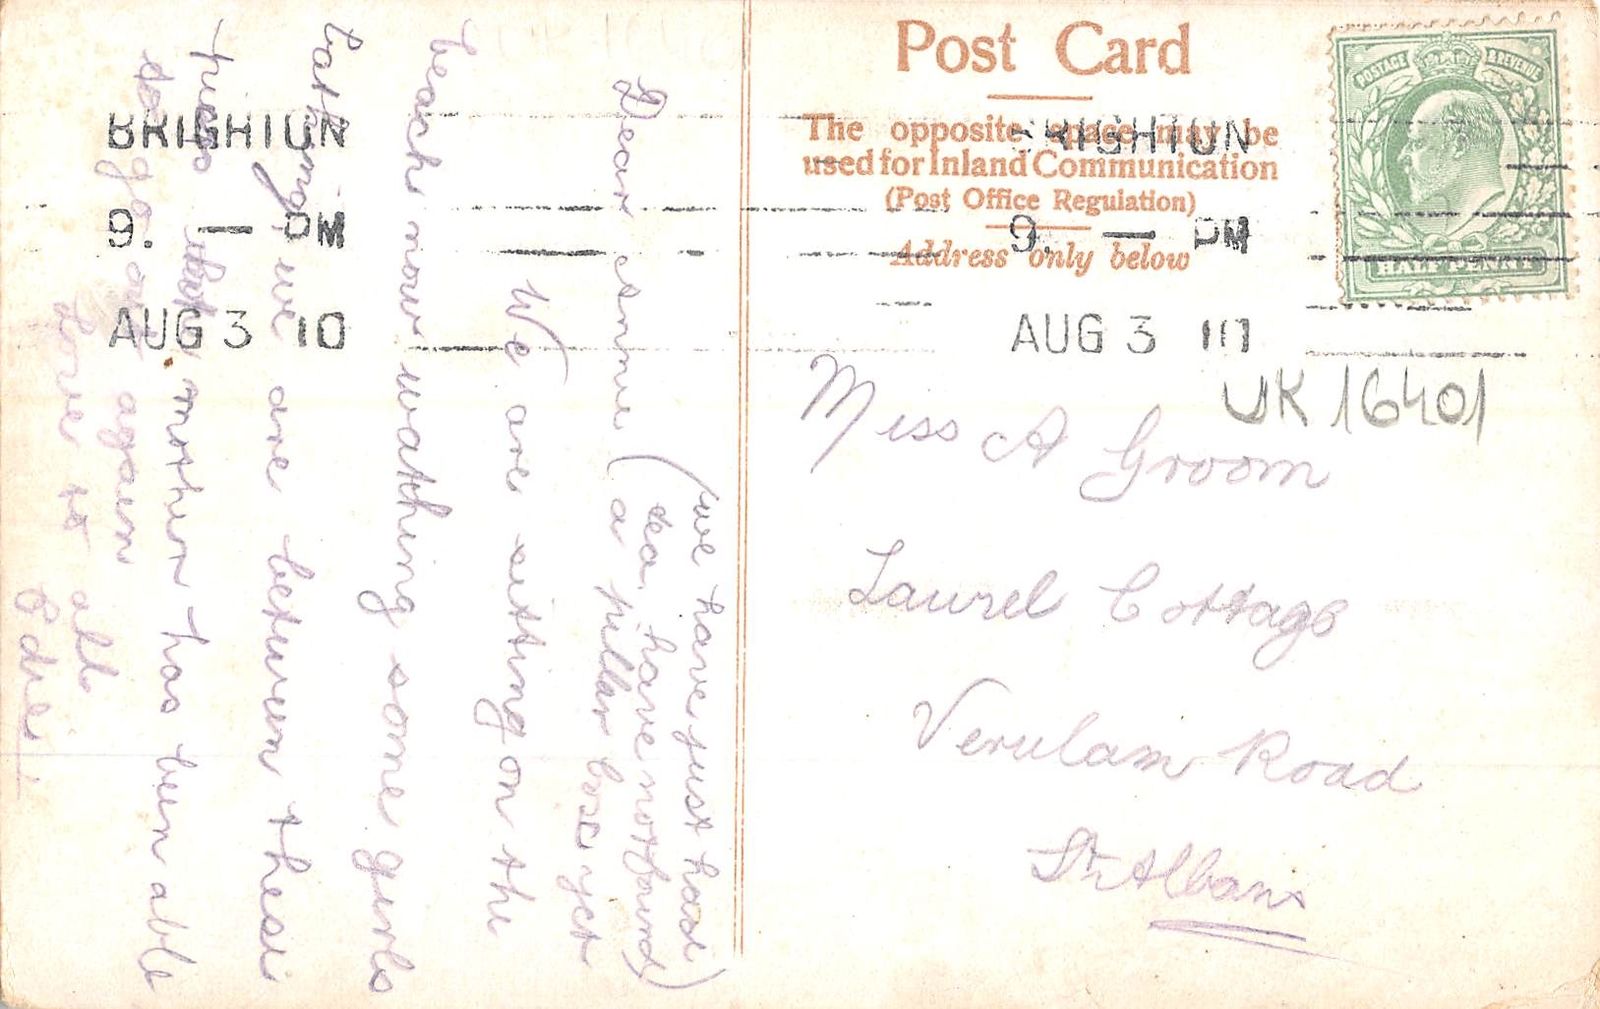 Post Card
The opposite space may be
used for Inland Communication
(Post Office Regulation)
Address only below
POSTAGE & REVENUE
HALF PENNY
BRIGHTON
9. — PM
AUG 3 10
BRIGHTON
9. — PM
AUG 3 10
UK 16401
Miss A Groom
Laurel Cottage
Verulam Road
St Albans
(we have just had
sea, have not found)
Dear Annie ( a pillar box yet
We are sitting on the
beach now watching some girls
bathing, we are between these
piers mother has been able
to go out again
Love to all
Edie